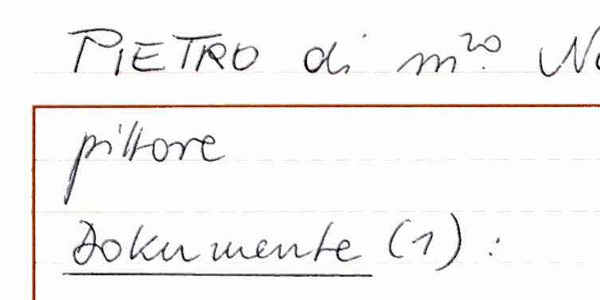 PIETRO di m.ro
pittore
Dokumente (1):